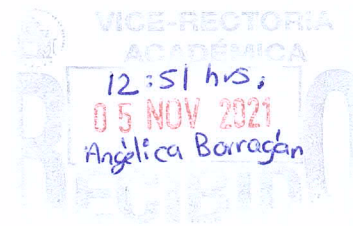 VICE-RECTORIA
ACADÉMICA
12:51 hrs.
05 NOV 2021
Angélica Barragán
RECIBIDO